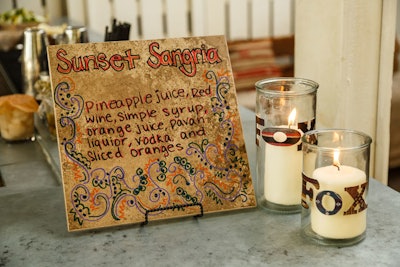 Sunset Sangria
Pineapple juice, Red
wine, simple syrup,
orange juice, pavan
liquor, vodka and
sliced oranges
FOX